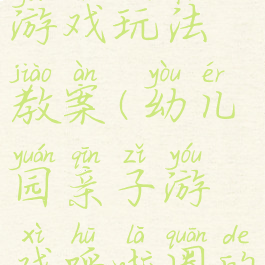 游戏玩法
jiào àn yòu ér
教案(幼儿
yuán qīn zǐ yóu
园亲子游
xì hū lā quān de
戏呼啦圈的